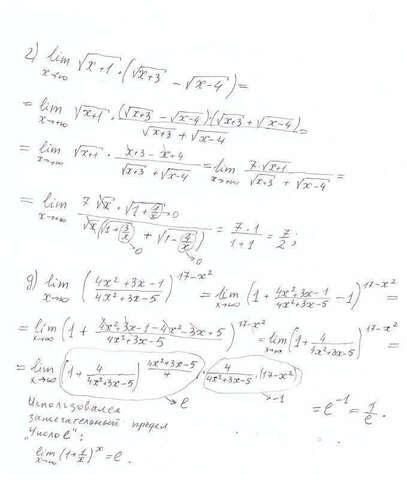 г) lim x→∞ √x+1 · (√x+3 − √x−4) =
= lim x→+∞ √x+1 · (√x+3 − √x−4)(√x+3 + √x−4) / √x+3 + √x−4 =
= lim x→+∞ √x+1 · x+3−x+4 / √x+3 + √x−4 = lim x→+∞ 7·√x+1 / √x+3 + √x−4 =
= lim x→+∞ 7√x · √1+1/x→0 / √x(√1+3/x→0 + √1−4/x→0) = 7·1 / 1+1 = 7/2;
g) lim x→∞ (4x²+3x−1 / 4x²+3x−5)^17−x² = lim x→∞ (1 + 4x²+3x−1 / 4x²+3x−5 − 1)^17−x² =
= lim x→∞ (1 + 4x²+3x−1−4x²−3x+5 / 4x²+3x−5)^17−x² = lim x→∞ (1 + 4 / 4x²+3x−5)^17−x² =
= lim x→∞ (1 + 4 / 4x²+3x−5)^4x²+3x−5 / 4 · 4 / 4x²+3x−5 · (17−x²)
→e →−1 = e⁻¹ = 1/e.
Использовался
замечательный предел
„Число e":
lim x→∞ (1+1/x)^x = e.